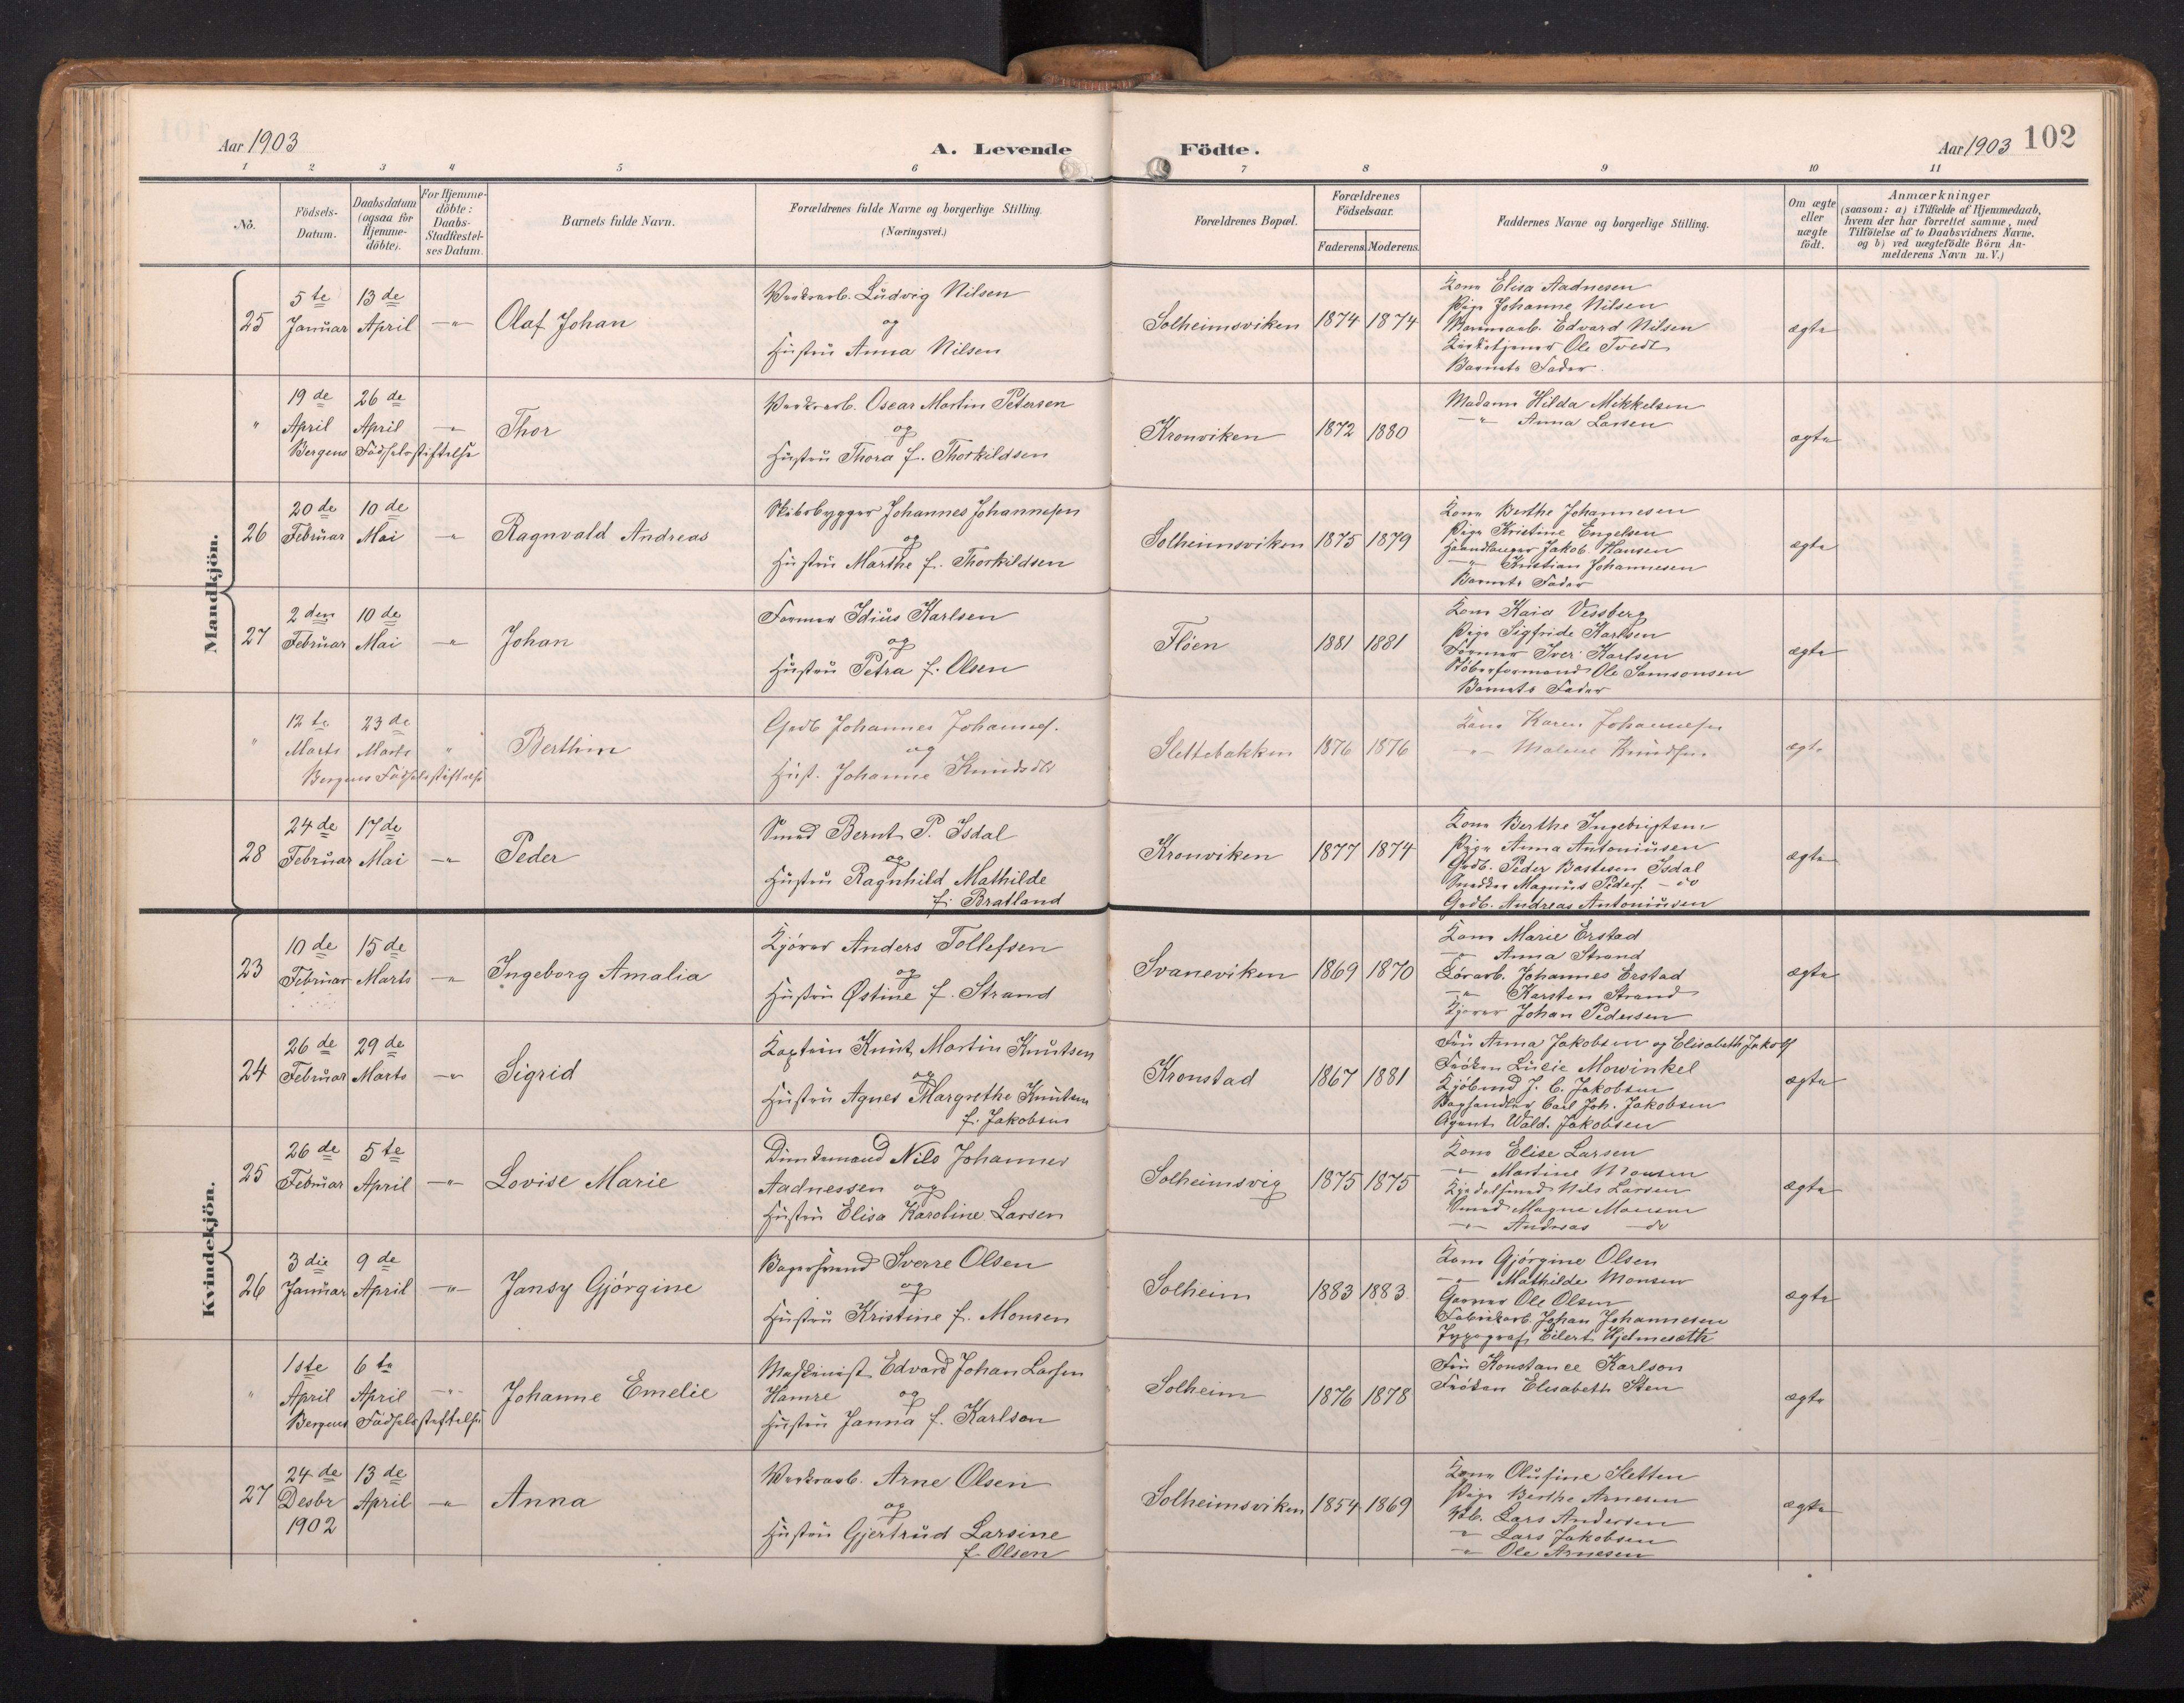 Aar 1903
A. Levende
Födte.
Aar 1903 102
1 2 3 4 5 6 7 8 9 10 11
No.
Födsels-
Datum.
Daabsdatum
(ogsaa for
Hjemme-
döbte).
For Hjemme-
döbte:
Daabs-
Stadfæstel-
ses Datum.
Barnets fulde Navn.
Forældrenes fulde Navne og borgerlige Stilling.
(Næringsvei.)
Forældrenes Bopæl.
Forældrenes
Födselsaar.
Faderens. Moderens.
Faddernes Navne og borgerlige Stilling.
Om ægte
eller
uægte
födt.
Anmærkninger
(saasom: a) i Tilfælde af Hjemmedaab,
hvem der har forrettet samme, med
Tilföielse af to Daabsvidners Navne,
og b) ved uægtefödte Börn An-
melderens Navn m. V.)
Mandkjön.
25
5te
Januar
13de
April
-"-
Olaf Johan
Værksarb. Ludvig Nilsen
og
Hustru Anna Nilsen
Solheimsviken
1874
1874
Kone Elisa Aadnesen
Pige Johanne Nilsen
Edvard Nilsen
Kirketjener Ole Tvedt
Barnets Fader.
ægte
"
19de
April
26de
April
-"-
Bergens Födselsstiftelse
Thor
Værksarb. Oscar Martin Petersen
og
Hustru Thora f. Thorkildsen
Kronviken
1872
1880
Madam Hilda Mikkelsen
-"- Anna Larsen
ægte
26
20de
Februar
10de
Mai
-"-
Ragnvald Andreas
Skibsbygger Johannes Johannesen
og
Hustru Marthe f. Thorkildsen
Solheimsviken
1875
1879
Kone Berthe Johannesen
Pige Kristine Engelsen
Haandlanger Jakob Hansen
-"- Kristian Johannesen
Barnets Fader
ægte
27
2den
Februar
10de
Mai
-"-
Johan
Former Idius Karlsen
og
Hustru Petra f. Olsen
Flöen
1881
1881
Kone Kaia Vessberg
Pige Sigfride Karlsen
Former Iver Karlsen
Støberformand Ole Samsonsen
Barnets Fader
ægte
"
12te
Marts
23de
Marts
"
Bergens Födselsstiftelse
Berthin
Grdb Johannes Johannes.
og
Hust. Johanne Knudsdtr
Slettebakken
1876
1876
Kone Karen Johannesen
-"- Malene Knudsen
ægte
28
24de
Februar
17de
Mai
-"-
Peder
Smed Bernt P. Isdal
og
Hustru Ragnhild Mathilde
f. Bratland
Kronviken
1877
1874
Kone Berthe Ingebrigtsen
Pige Anna Antoniusen
Grdb. Peder Bastesen Isdal
Snedker Magnus Peders. - do
Grdb. Andreas Antoniusen
ægte
Kvindekjön.
23
10de
Februar
15de
Marts
-"-
Ingeborg Amalia
Kjører Anders Tollefsen
og
Hustru Østine f. Strand
Svaneviken
1869
1870
Kone Marie Erstad
-"- Anna Strand
Johannes Erstad
-"- Karsten Strand
Kjører Johan Pedersen
ægte
24
26de
Februar
29de
Marts
-"-
Sigrid
Kaptein Knut Martin Knutsen
og
Hustru Agnes Margrethe Knutsen
f. Jakobsen
Kronstad
1867
1881
Fru Anna Jakobsen og Elisabeth Jakobs
Frøken Lucie Mowinkel
Kjøbmd J. C. Jakobsen
Boghandler Carl Joh. Jakobsen
Agent Wald. Jakobsen
ægte
25
26de
Februar
5te
April
-"-
Lovise Marie
Nils Johannes
Aadnessen og
Hustru Elisa Karoline Larsen
Solheimsvig
1875
1875
Kone Elise Larsen
-"- Martine Monsen
Kjedelsmed Nils Larsen
Smed Magne Monsen
-"- Andreas - do
ægte
26
3die
Januar
9de
April
-"-
Jansy Gjörgine
Bagersvend Sverre Olsen
og
Hustru Kristine f. Monsen
Solheim
1883
1883
Kone Gjörgine Olsen
-"- Mathilde Monsen
Garver Ole Olsen
Fabrikarb. Johan Johannesen
Typograf Eilert Hjelmesæth
ægte
"
1ste
April
6te
April
-"-
Bergens Födselsstiftelse
Johanne Emelie
Maskinist Edvard Johan Larsen
Hamre og
Hustru Janna f. Karlson
Solheim
1876
1878
Fru Konstance Karlson
Frøken Elisabeth Sten
ægte
27
24de
Desbr
1902
13de
April
-"-
Anna
Værksarb. Arne Olsen
og
Hustru Gjertrud Larsine
f. Olsen
Solheimsviken
1854
1869
Kone Olufine Sletten
Pige Berthe Arnesen
Lars Andersen
-"- Lars Jakobsen
-"- Ole Arnesen
ægte